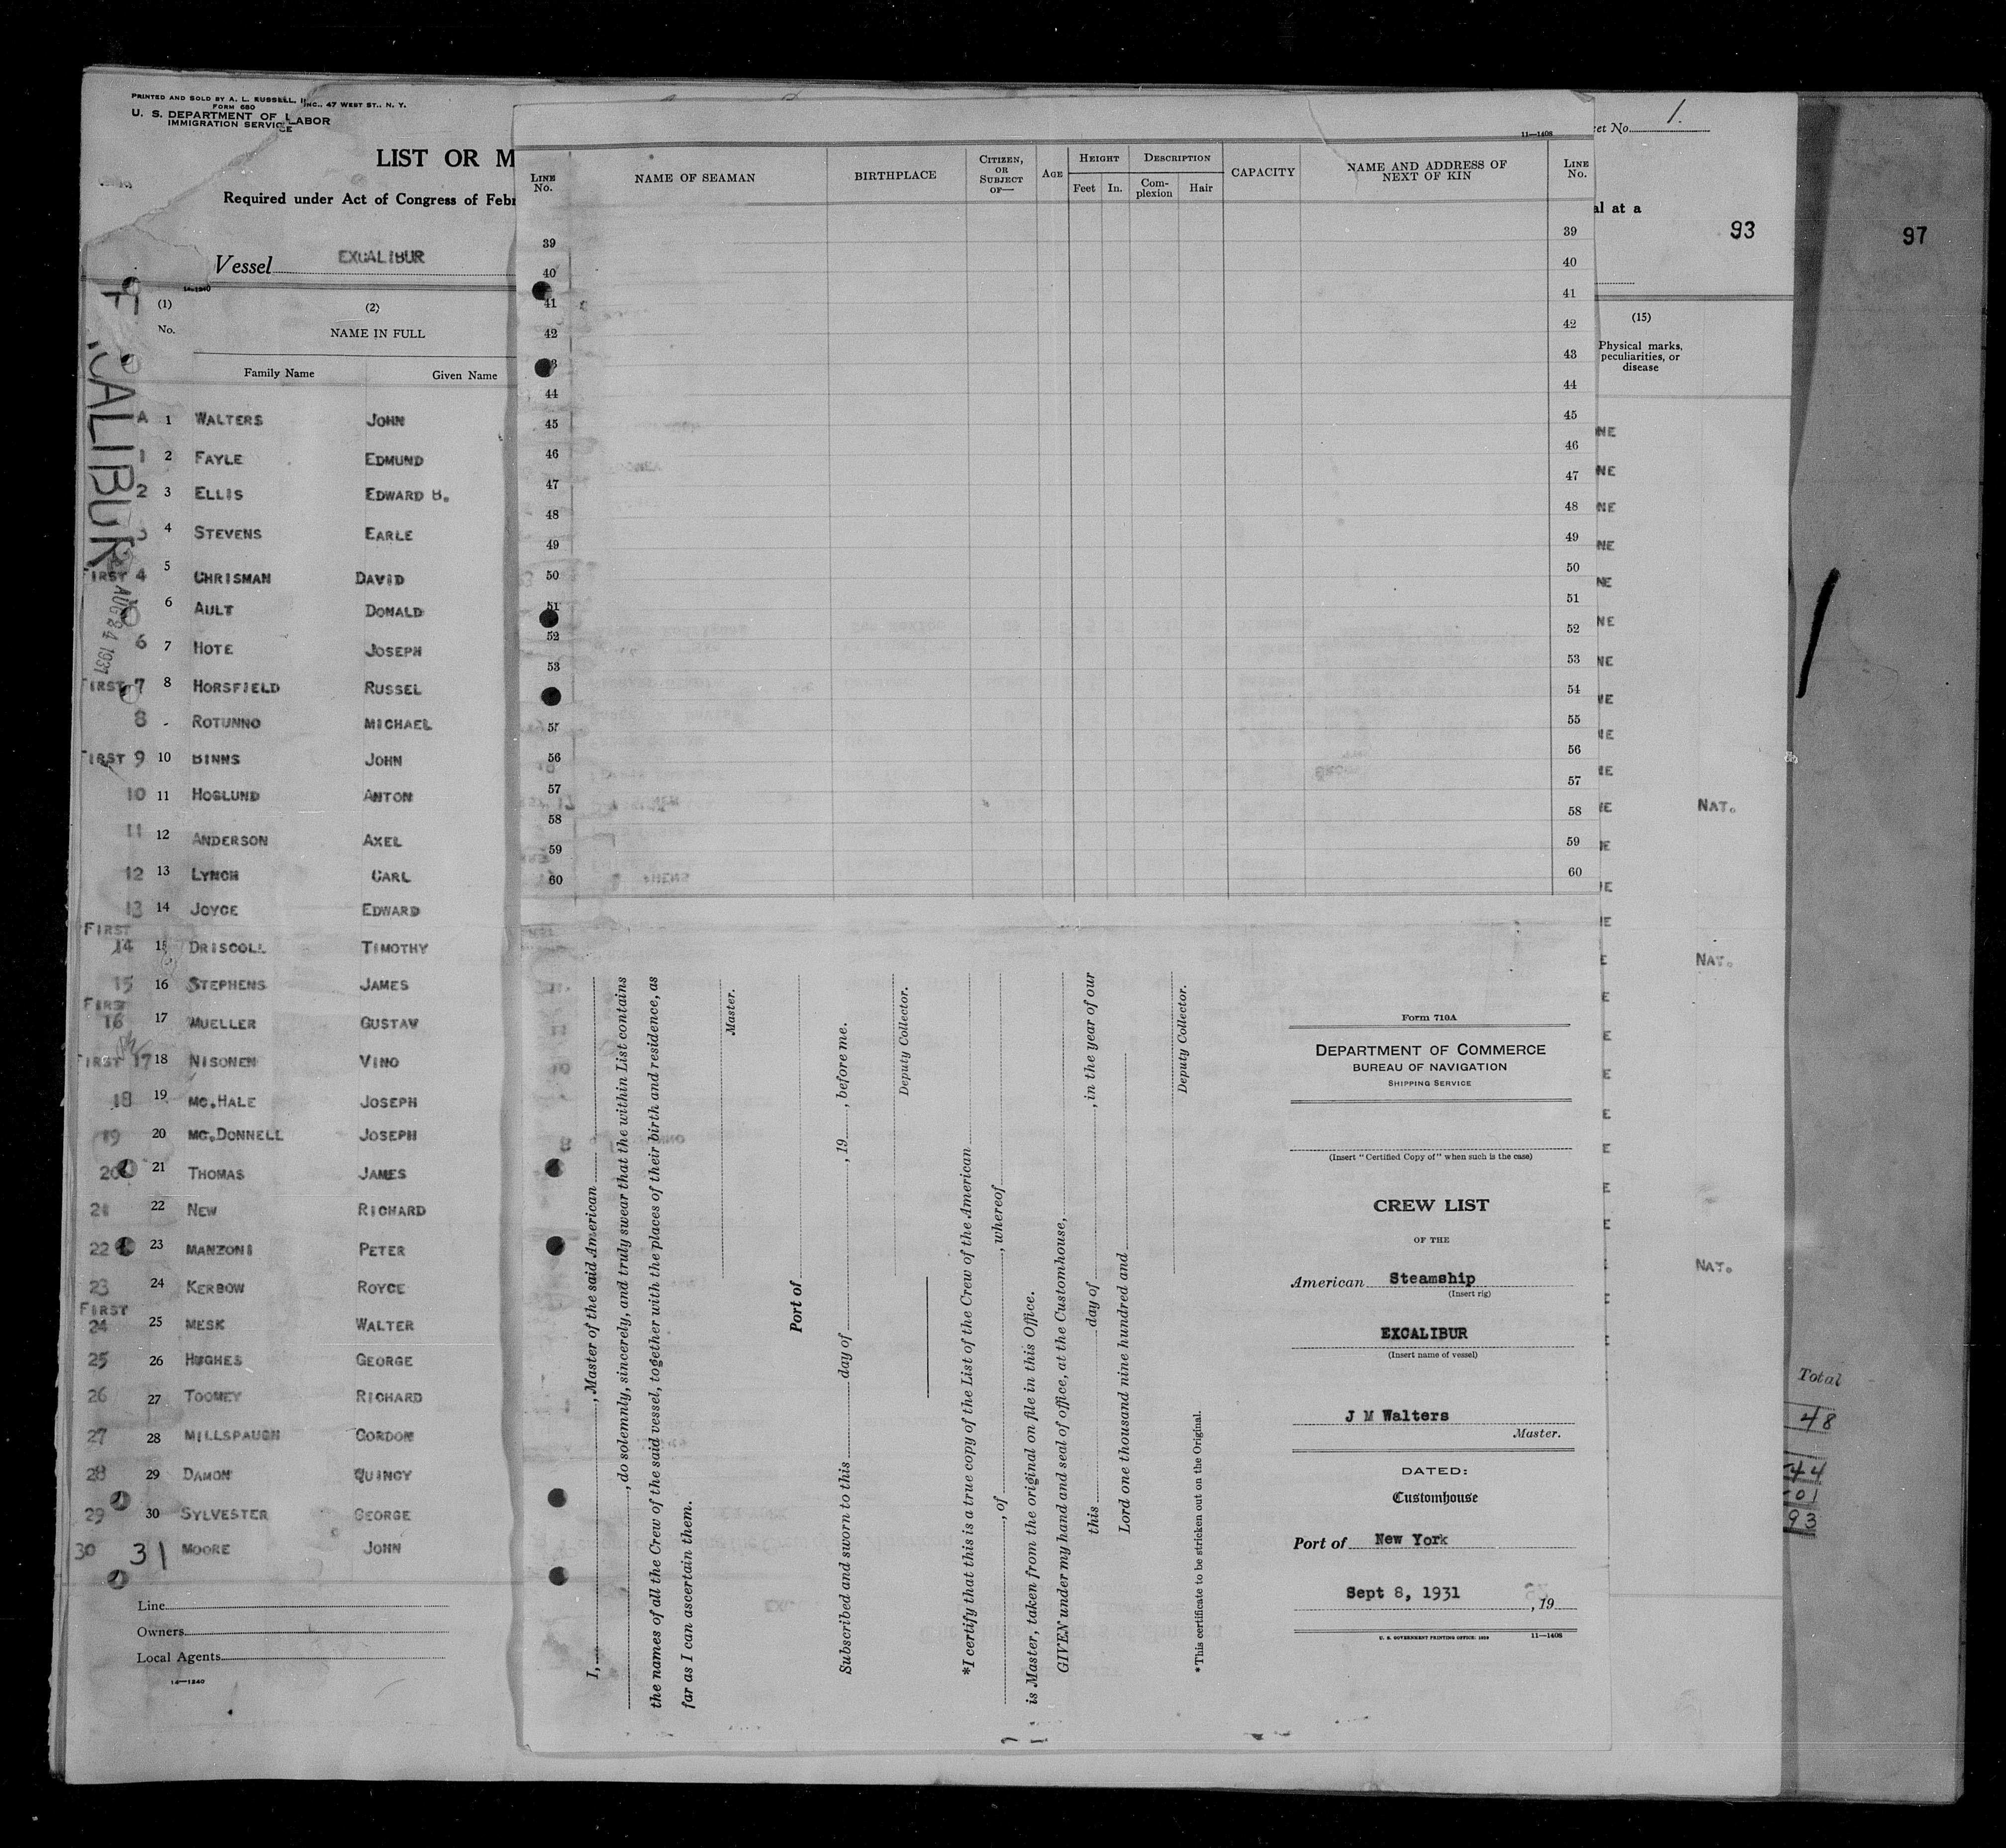 PRINTED AND SOLD BY A. L. RUSSELL, INC., 47 WEST ST., N. Y.
FORM 680
U. S. DEPARTMENT OF LABOR
IMMIGRATION SERVICE
LIST OR M
Required under Act of Congress of Febr
Vessel EXCALIBUR
14-1240
(1) (2)
No. NAME IN FULL
Family Name Given Name
CALIBUR
AUG 24 1931
A 1 WALTERS JOHN
1 2 FAYLE EDMUND
2 3 ELLIS EDWARD B.
3 4 STEVENS EARLE
FIRST 4 5 CHRISMAN DAVID
6 AULT DONALD
6 7 HOTE JOSEPH
FIRST 7 8 HORSFIELD RUSSEL
8 ROTUNNO MICHAEL
FIRST 9 10 BINNS JOHN
10 11 HOGLUND ANTON
11 12 ANDERSON AXEL
12 13 LYNCH CARL
13 14 JOYCE EDWARD
FIRST
14 15 DRISCOLL TIMOTHY
15 16 STEPHENS JAMES
FIRST
16 17 MUELLER GUSTAV
FIRST 17 18 NISONEN VINO
18 19 MC.HALE JOSEPH
19 20 MC.DONNELL JOSEPH
20 21 THOMAS JAMES
21 22 NEW RICHARD
22 23 MANZONI PETER
23 24 KERBOW ROYCE
FIRST
24 25 MESK WALTER
25 26 HUGHES GEORGE
26 27 TOOMEY RICHARD
27 28 MILLSPAUGH GORDON
28 29 DAMON QUINCY
29 30 SYLVESTER GEORGE
30 31 MOORE JOHN
Line
Owners
Local Agents
14—1240
11—1408
LINE No. NAME OF SEAMAN BIRTHPLACE CITIZEN, OR SUBJECT OF— AGE HEIGHT Feet In. DESCRIPTION Complexion Hair CAPACITY NAME AND ADDRESS OF NEXT OF KIN LINE No.
39 39
40 40
41 41
42 42
43 43
44 44
45 45
46 46
47 47
48 48
49 49
50 50
51 51
52 52
53 53
54
55 55
56 56
57 57
58 58
59 59
60 60
I, , Master of the said American
, do solemnly, sincerely, and truly swear that the within List contains
the names of all the Crew of the said vessel, together with the places of their birth and residence, as
far as I can ascertain them.
Master.
Port of
Subscribed and sworn to this day of , 19 , before me.
Deputy Collector.
*I certify that this is a true copy of the List of the Crew of the American
, of , whereof
is Master, taken from the original on file in this Office.
GIVEN under my hand and seal of office, at the Customhouse,
this day of , in the year of our
Lord one thousand nine hundred and
Deputy Collector.
*This certificate to be stricken out on the Original.
Form 710A
DEPARTMENT OF COMMERCE
BUREAU OF NAVIGATION
SHIPPING SERVICE
(Insert "Certified Copy of" when such is the case)
CREW LIST
OF THE
American Steamship
(Insert rig)
EXCALIBUR
(Insert name of vessel)
J M Walters
Master.
DATED:
Customhouse
Port of New York
Sept 8, 1931 , 19
U. S. GOVERNMENT PRINTING OFFICE: 1929 11—1408
et No. 1.
al at a
93
97
(15)
Physical marks, peculiarities, or disease
NE
NE
NE
NE
NE
NE
NE
NE
NE
NE
NE NAT.
E
E
E
E NAT.
E
E
E
E
E
E
E
NAT.
E
E
Total
48
44
01
93